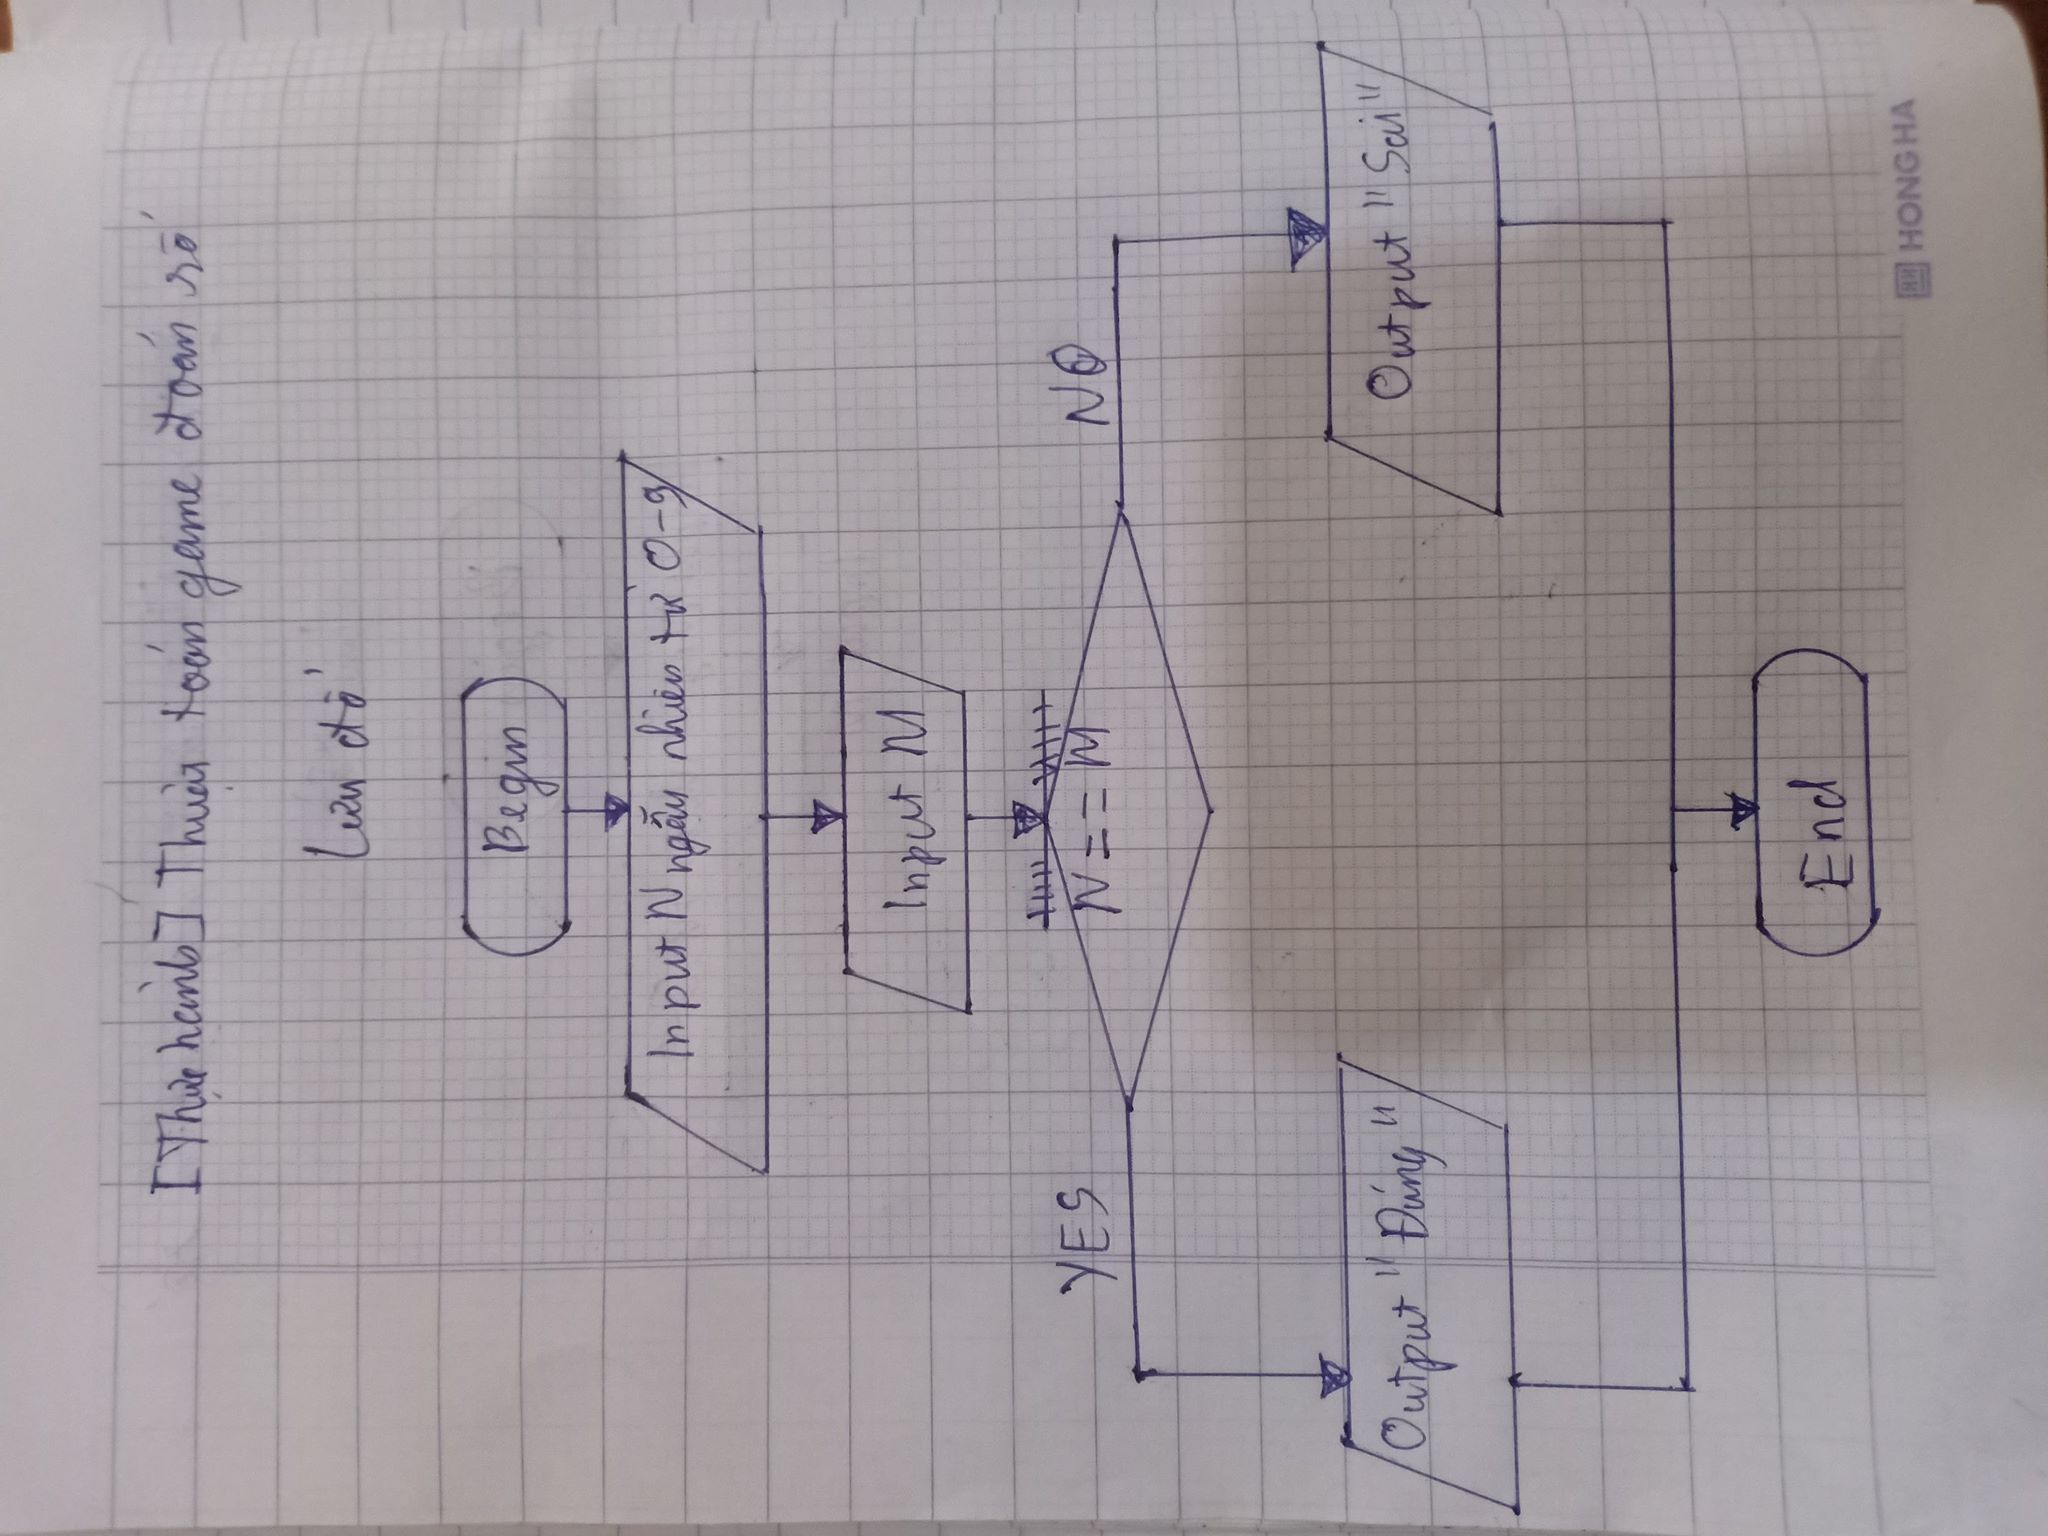 [Thực hành] Thuật toán game đoán số
Lưu đồ
Begin
Input N ngẫu nhiên từ 0-9
Input M
N == M
YES
NO
Output "Đúng"
Output "Sai"
End
HONG HA